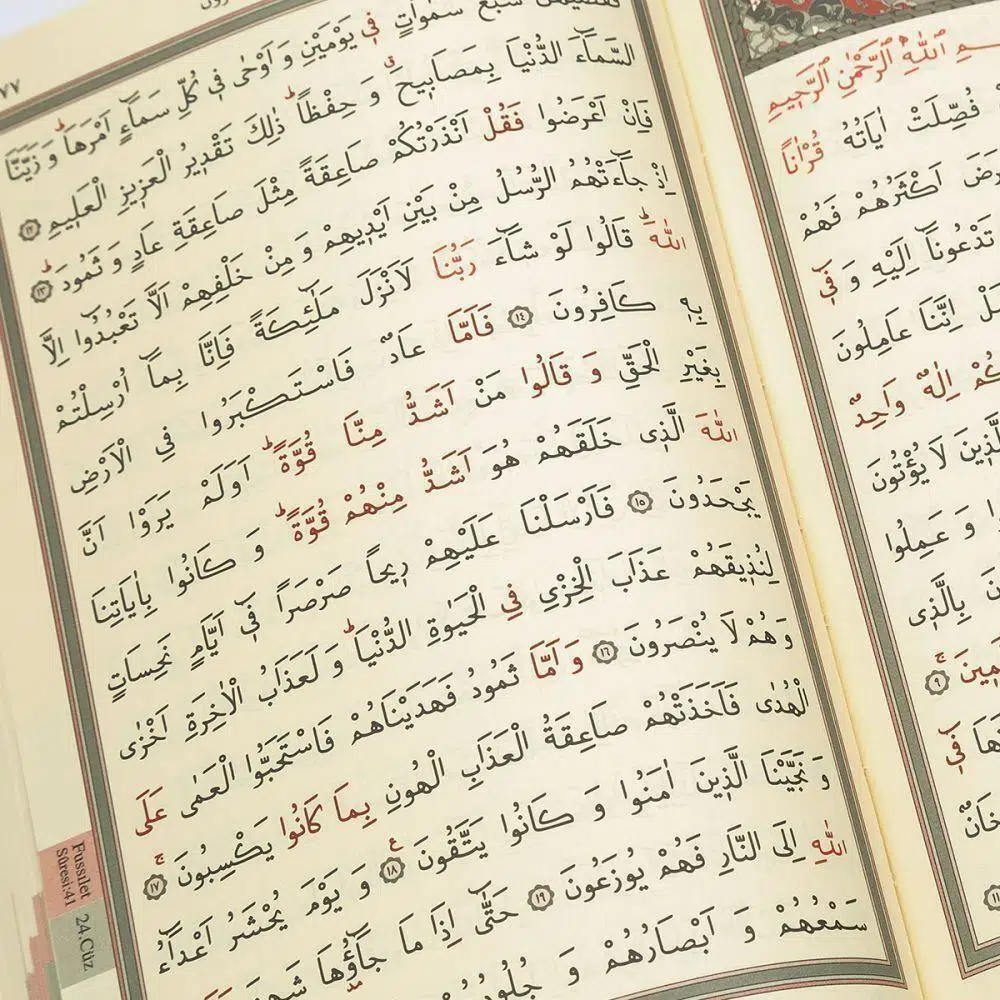 اللّٰهِ الرَّحْمٰنِ الرَّحٖيمِ
فُصِّلَتْ اٰيَاتُهُ قُرْاٰناً
اَكْثَرُهُمْ فَهُمْ
تَدْعُونَٓا اِلَيْهِ وَ فٖٓي
اِنَّنَا عَامِلُونَ
اِلٰهٌ وَاحِدٌ
الَّذٖينَ لَا يُؤْتُونَ
وَ عَمِلُوا
بِالَّذٖي
٩
فٖٓي
١١
٧٧
سَبْعَ سَمٰوَاتٍ فٖي يَوْمَيْنِ وَ اَوْحٰى فٖي كُلِّ سَمَٓاءٍ اَمْرَهَاؕ وَ زَيَّنَّا
السَّمَٓاءَ الدُّنْيَا بِمَصَابٖيحَࣗ وَ حِفْظاًؕ ذٰلِكَ تَقْدٖيرُ الْعَزٖيزِ الْعَلٖيمِ ١٢
فَاِنْ اَعْرَضُوا فَقُلْ اَنْذَرْتُكُمْ صَاعِقَةً مِثْلَ صَاعِقَةِ عَادٍ وَ ثَمُودَؕ ١٣
اِذْ جَٓاءَتْهُمُ الرُّسُلُ مِنْ بَيْنِ اَيْدٖيهِمْ وَ مِنْ خَلْفِهِمْ اَلَّا تَعْبُدُٓوا اِلَّا
اللّٰهَؕ قَالُوا لَوْ شَٓاءَ رَبُّنَا لَاَنْزَلَ مَلٰٓئِكَةً فَاِنَّا بِمَٓا اُرْسِلْتُمْ
بِهٖ كَافِرُونَ ١٤ فَاَمَّا عَادٌ فَاسْتَكْبَرُوا فِي الْاَرْضِ
بِغَيْرِ الْحَقِّ وَ قَالُوا مَنْ اَشَدُّ مِنَّا قُوَّةًؕ اَوَلَمْ يَرَوْا اَنَّ
اللّٰهَ الَّذٖي خَلَقَهُمْ هُوَ اَشَدُّ مِنْهُمْ قُوَّةًؕ وَ كَانُوا بِاٰيَاتِنَا
يَجْحَدُونَ ١٥ فَاَرْسَلْنَا عَلَيْهِمْ رٖيحاً صَرْصَراً فٖٓي اَيَّامٍ نَحِسَاتٍ
لِنُذٖيقَهُمْ عَذَابَ الْخِزْيِ فِي الْحَيٰوةِ الدُّنْيَاؕ وَ لَعَذَابُ الْاٰخِرَةِ اَخْزٰى
وَ هُمْ لَا يُنْصَرُونَ ١٦ وَ اَمَّا ثَمُودُ فَهَدَيْنَاهُمْ فَاسْتَحَبُّوا الْعَمٰى عَلَى
الْهُدٰى فَاَخَذَتْهُمْ صَاعِقَةُ الْعَذَابِ الْهُونِ بِمَا كَانُوا يَكْسِبُونَۚ ١٧
وَ نَجَّيْنَا الَّذٖينَ اٰمَنُوا وَ كَانُوا يَتَّقُونَ ع ١٨ وَ يَوْمَ يُحْشَرُ اَعْدَٓاءُ
اللّٰهِ اِلَى النَّارِ فَهُمْ يُوزَعُونَ ١٩ حَتّٰٓى اِذَا مَا جَٓاؤُ۫هَا
سَمْعُهُمْ وَ اَبْصَارُهُمْ وَ
Fussılet
Sûresi:41
24.Cüz